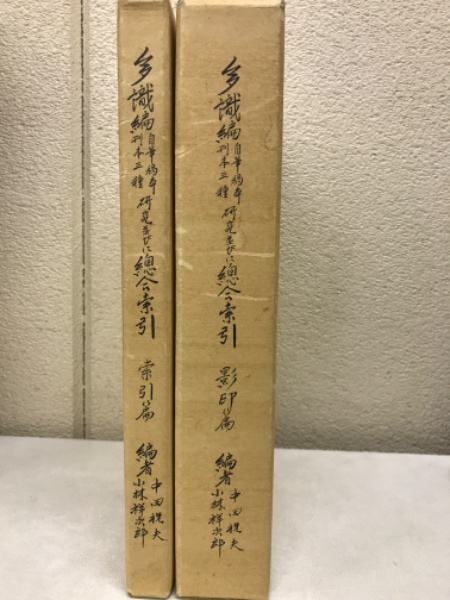 多識編
自筆稿本
刊本三種
研究並びに總合索引
影印篇
編者
中田祝夫
小林祥次郎
多識編
自筆稿本
刊本三種
研究並びに總合索引
索引篇
編者
中田祝夫
小林祥次郎